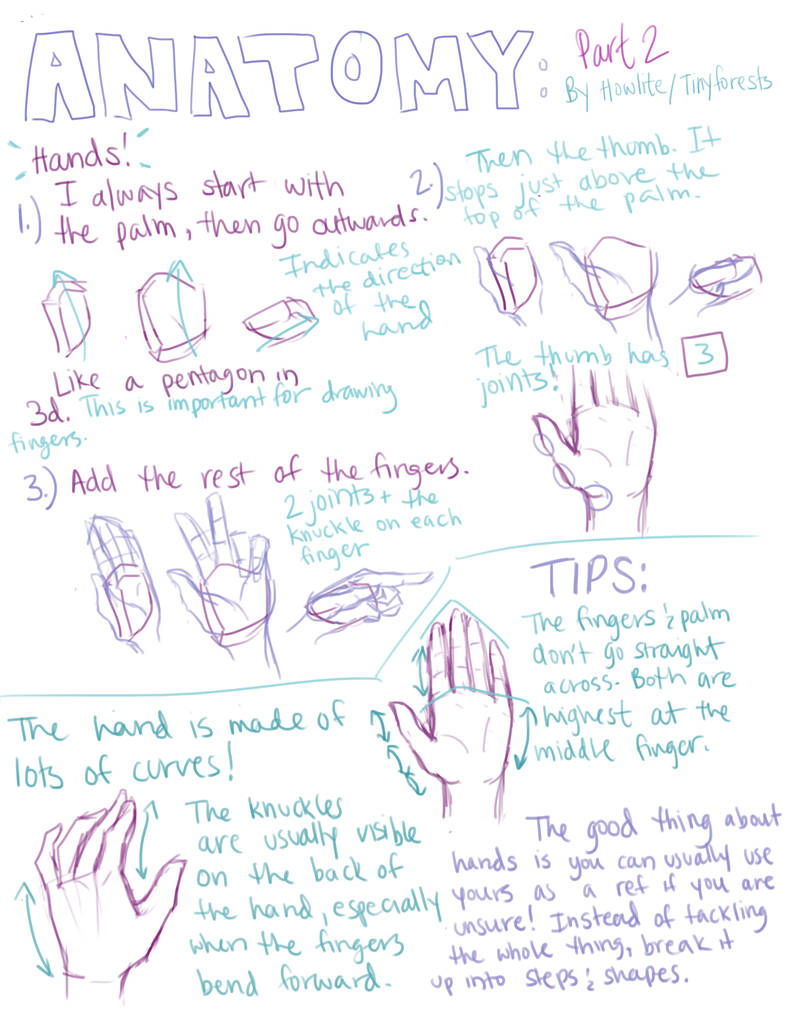 ANATOMY:
Part 2
By Howlite/Tinyforests
Hands!
1.) I always start with
the palm, then go outwards.
Indicates
the direction
of the
hand
Like a pentagon in
3d. This is important for drawing
fingers.
2.) Then the thumb. It
stops just above the
top of the palm.
The thumb has 3
joints!
3.) Add the rest of the fingers.
2 joints + the
knuckle on each
finger
TIPS:
The fingers & palm
don't go straight
across. Both are
highest at the
middle finger.
The hand is made of
lots of curves!
The knuckles
are usually visible
on the back of
the hand, especially
when the fingers
bend forward.
The good thing about
hands is you can usually use
yours as a ref if you are
unsure! Instead of tackling
the whole thing, break it
up into steps & shapes.